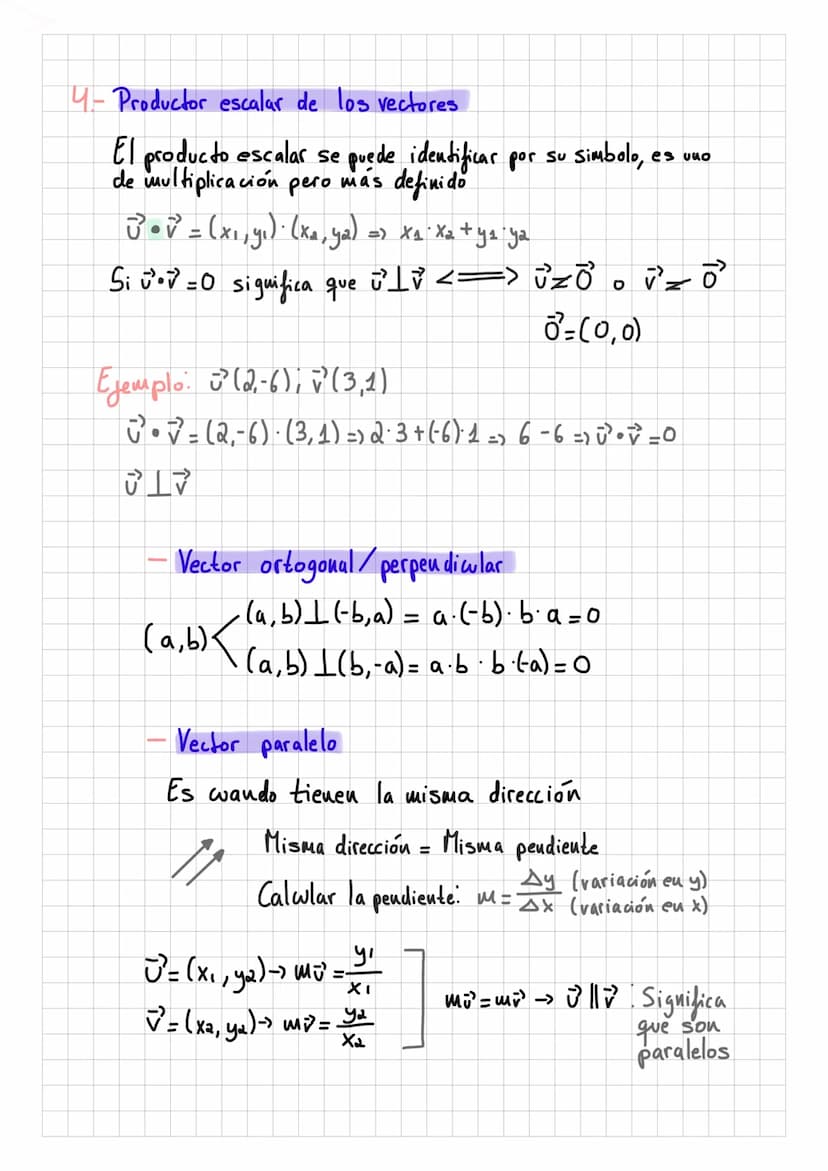 4.- Productor escalar de los vectores
El producto escalar se puede identificar por su simbolo, es uno
de multiplicación pero más definido
u⃗ • v⃗ = (x₁, y₁) · (x₂, y₂) => x₁ · x₂ + y₁ · y₂
Si u⃗ • v⃗ = 0 significa que u⃗ ⊥ v⃗ <=> u⃗ ≠ 0⃗ o v⃗ ≠ 0⃗
0⃗ = (0,0)
Ejemplo: u⃗ (2,-6) ; v⃗ (3,1)
u⃗ • v⃗ = (2,-6) · (3,1) => 2·3 + (-6)·1 => 6 - 6 => u⃗ • v⃗ = 0
u⃗ ⊥ v⃗
- Vector ortogonal / perpendicular
(a,b) ⊥ (-b,a) = a·(-b) · b·a = 0
(a,b) <
(a,b) ⊥ (b,-a) = a·b · b·(-a) = 0
- Vector paralelo
Es cuando tienen la misma dirección
Misma dirección = Misma pendiente
Calcular la pendiente: m = Δy / Δx (variación en y) (variación en x)
u⃗ = (x₁, y₂) → mu⃗ = y₁ / x₁
v⃗ = (x₂, y₂) → mv⃗ = y₂ / x₂
mu⃗ = mv⃗ → u⃗ ∥ v⃗ : Significa
que son
paralelos